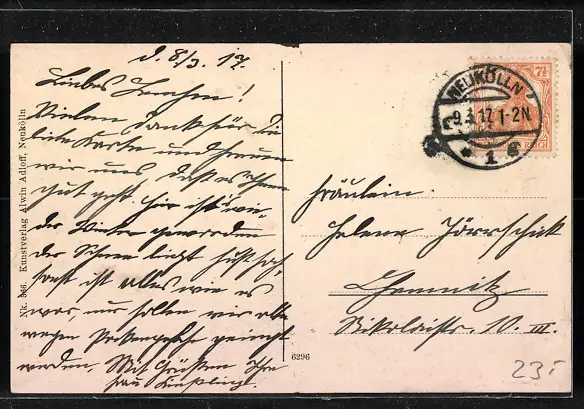 d. 8/3. 17.
Liebes Lenchen!
Vielen Dank für Die
liebe Karte und freuen
wir uns daß es Ihnen
gut geht. Hier ist's wie-
der Winter geworden
der Schnee liegt fußhoch,
sonst ist alles wie es
war, nur sollen wir alle
wegen gereinigt
werden. Mit Grüßen Ihre
Frau
Nk. 346. Kunstverlag Alwin Adloff, Neukölln
6296
NEUKÖLLN
9.3.17.1-2N.
* 1
7½
REICH
Fräulein
Helene
Chemnitz
Nikolaistr. 10. III.
23,-